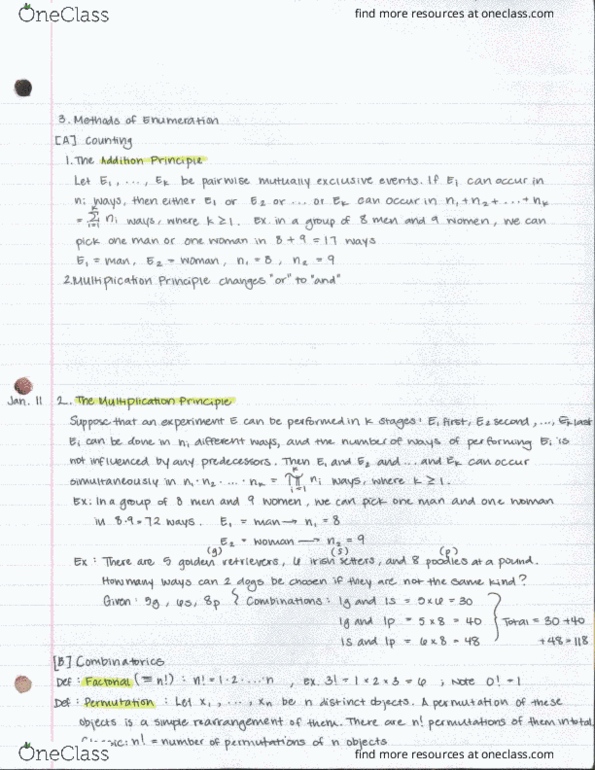 OneClass
find more resources at oneclass.com
3. Methods of Enumeration
[A] Counting
1. The Addition Principle
Let E₁, ..., Eₖ be pairwise mutually exclusive events. If E₁ can occur in
nᵢ ways, then either E₁ or E₂ or ... or Eₖ can occur in n₁+n₂+...+nₖ
= Σᵢ₌₁ᵏ nᵢ ways, where k≥1. Ex. in a group of 8 men and 9 women, we can
pick one man or one woman in 8+9=17 ways
E₁ = man, E₂ = woman, n₁ = 8, n₂ = 9
2. Multiplication Principle changes "or" to "and"
Jan. 11 2. The Multiplication Principle
Suppose that an experiment E can be performed in k stages: E₁ first, E₂ second, ..., Eₖ last
Eᵢ can be done in nᵢ different ways, and the number of ways of performing Eᵢ is
not influenced by any predecessors. Then E₁ and E₂ and ... and Eₖ can occur
simultaneously in n₁·n₂·...·nₖ = ∏ᵢ₌₁ᵏ nᵢ ways, where k≥1.
Ex: In a group of 8 men and 9 women, we can pick one man and one woman
in 8·9=72 ways. E₁ = man → n₁ = 8
E₂ = woman → n₂ = 9
(g) (s) (p)
Ex: There are 5 golden retrievers, 6 irish setters, and 8 poodles at a pound.
How many ways can 2 dogs be chosen if they are not the same kind?
Given: 5g, 6s, 8p { Combinations: 1g and 1s = 5x6 = 30
1g and 1p = 5x8 = 40 } Total = 30+40
1s and 1p = 6x8 = 48 +48=118
[B] Combinatorics
Def: Factorial (= n!): n! = 1·2·...·n, ex. 3! = 1x2x3 = 6; Note 0! = 1
Def: Permutation: Let x₁, ..., xₙ be n distinct objects. A permutation of these
objects is a simple rearrangement of them. There are n! permutations of them in total.
n! = number of permutations of n objects
OneClass
find more resources at oneclass.com